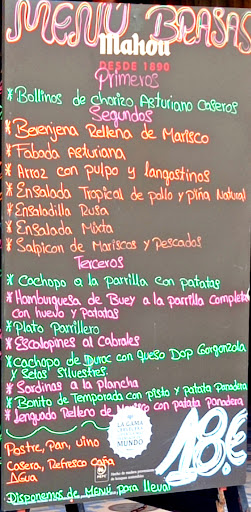 MENÚ BRASAS
Mahou
DESDE 1890
Primeros
* Bollinos de chorizo Asturiano Caseros
Segundos
* Berenjena Rellena de Marisco
* Fabada Asturiana
* Arroz con pulpo y langostinos
* Ensalada Tropical de pollo y piña Natural
* Ensaladilla Rusa
* Ensalada Mixta
* Salpicon de Mariscos y Pescados
Terceros
* Cachopo a la parrilla con patatas
* Hamburguesa de Buey a la parrilla completa
con huevo y patatas
* Plato Parrillero
* Escalopines al Cabrales
* Cachopo de Duroc con Queso Dop Gorgonzola
y Setas Silvestres.
* Sardinas a la plancha
* Bonito de Temporada con pisto y patata panadera
* Lenguado Relleno de Marisco con patata panadera
LA GAMA
MUNDO
18€
Postre, Pan, Vino
Casera, Refresco Caña
Agua
Disponemos de Menú para llevar